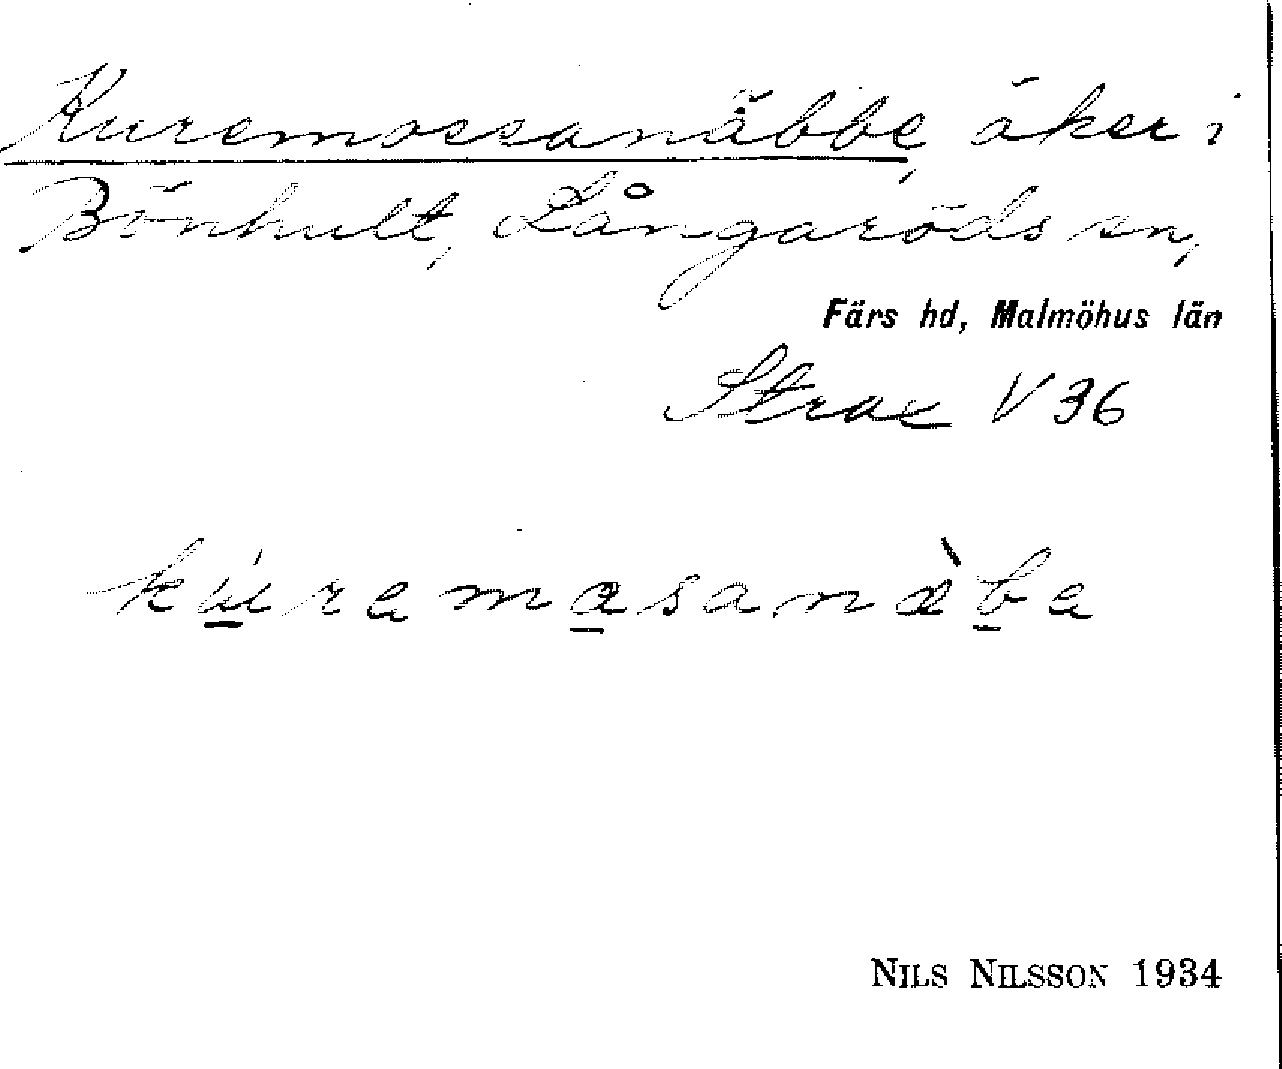 Kuremossanäbbe, åker i
Bönhult, Långaröds sn,
Färs hd, Malmöhus län
V 36
kúremasanæ̀be
NILS NILSSON 1934